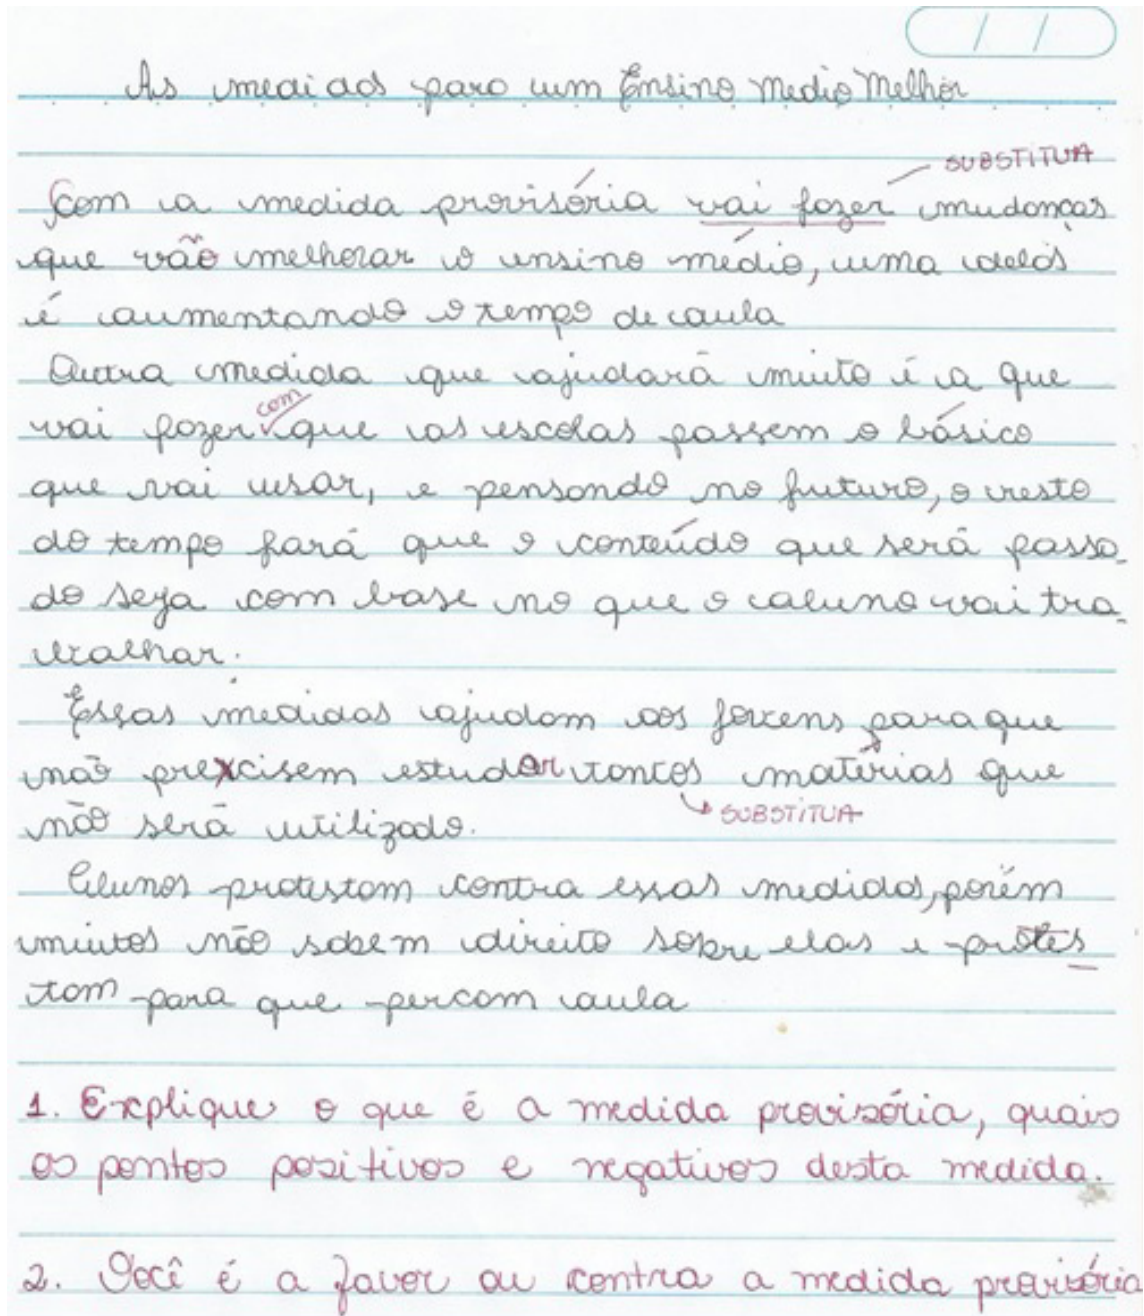 As medidas para um Ensino Medio Melhor
SUBSTITUA
Com a medida provisória vai fazer mudanças
que vão melhorar o ensino médio, uma delas
é aumentando o tempo de aula
Outra medida que ajudará muito é a que
vai fazer com que as escolas passem o básico
que vai usar, e pensando no futuro, o resto
do tempo fará que o conteúdo que será passa-
do seja com base no que o aluno vai tra-
balhar.
Essas medidas ajudam aos jovens para que
não precisem estudar tantas matérias que
não será utilizado.
SUBSTITUA
Alunos protestam contra essas medidas, porém
muitos não sabem direito sobre elas e protes
tam para que percam aula
1. Explique o que é a medida provisória, quais
os pontos positivos e negativos desta medida.
2. Você é a favor ou contra a medida provisória